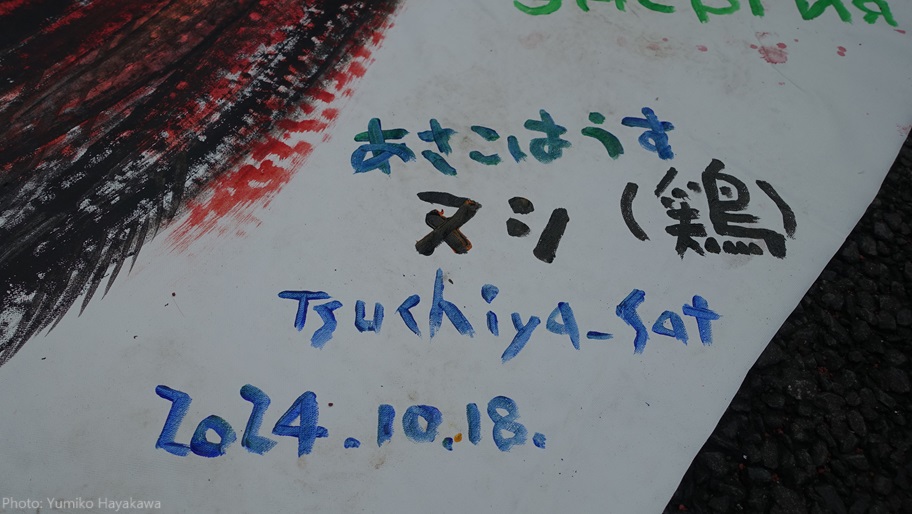 Энергия
あさこはうす
ヌシ(鶏)
Tsuchiya_Sat
2024.10.18.
Photo: Yumiko Hayakawa